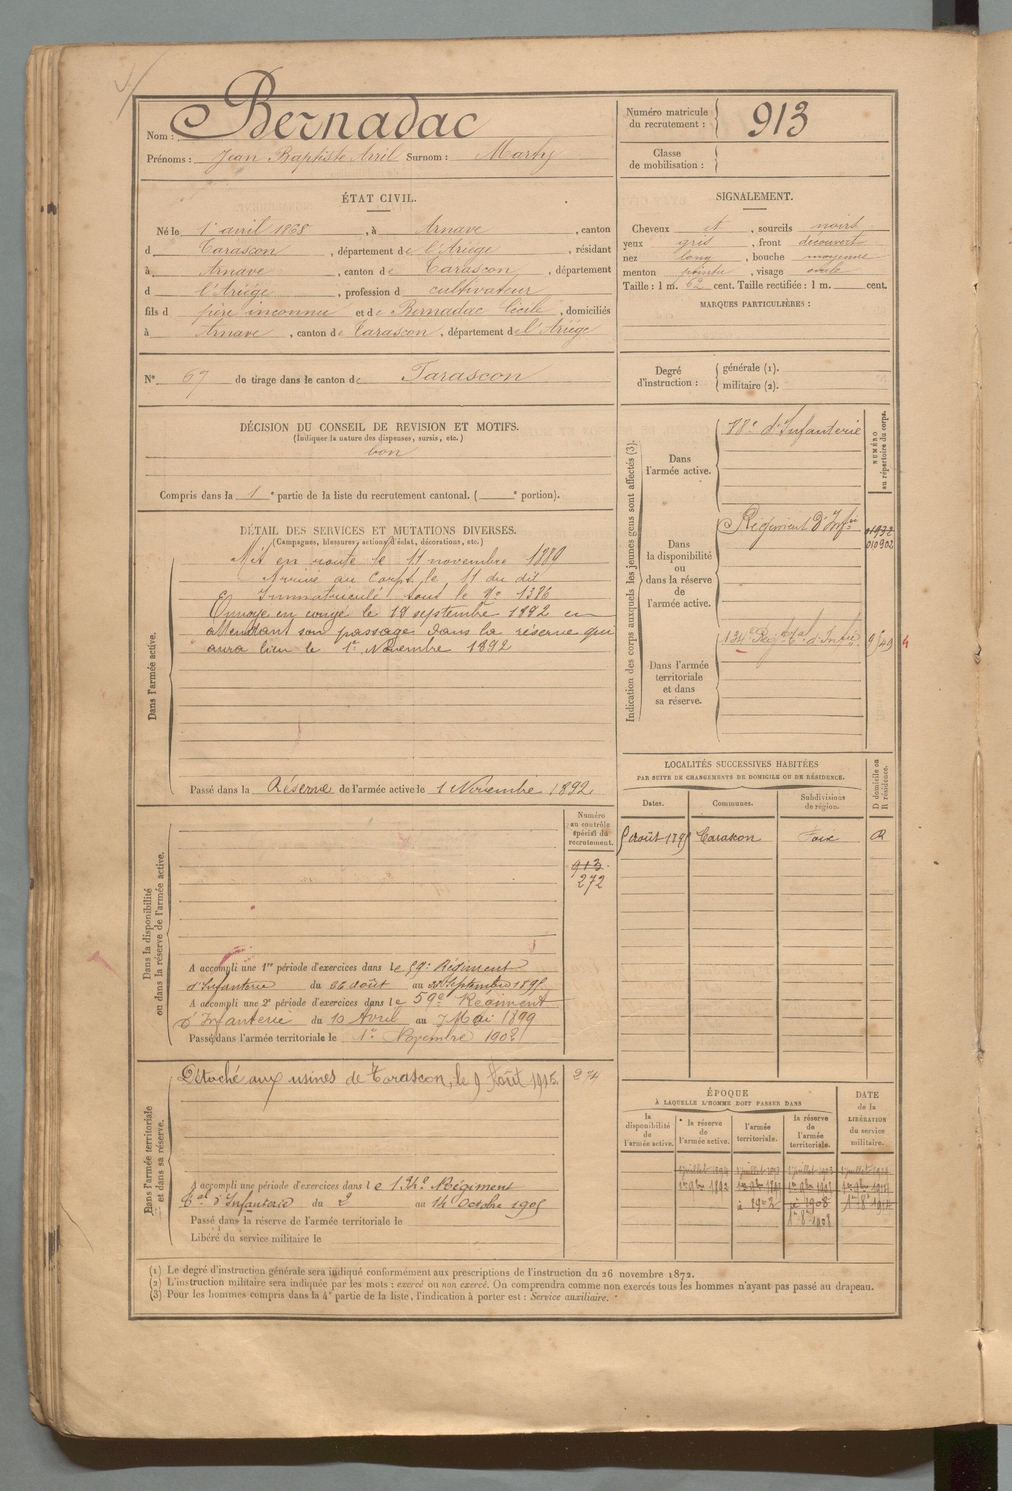 Nom : Bernadac
Prénoms : Jean Baptiste Avril Surnom :
Numéro matricule du recrutement : 913
Classe de mobilisation :
ÉTAT CIVIL.
Né le 1er avril 1868, à Arnave, canton
d Tarascon, département de l'Ariège, résidant
à Arnave, canton de Tarascon, département
d l'Ariège, profession d cultivateur
fils d père inconnu et de Bernadac Cécile, domiciliés
à Arnave, canton de Tarascon, département de l'Ariége
SIGNALEMENT.
Cheveux et, sourcils noirs
yeux gris, front découvert
nez long, bouche moyenne
menton pointu, visage ovale
Taille : 1 m. 62 cent. Taille rectifiée : 1 m. cent.
MARQUES PARTICULIÈRES :
N° 67 de tirage dans le canton de Tarascon
Degré d'instruction : générale (1).
militaire (2).
DÉCISION DU CONSEIL DE REVISION ET MOTIFS.
(Indiquer la nature des dispenses, sursis, etc.)
bon
Compris dans la 1e partie de la liste du recrutement cantonal. (e portion).
DÉTAIL DES SERVICES ET MUTATIONS DIVERSES.
(Campagnes, blessures, actions d'éclat, décorations, etc.)
Dans l'armée active.
Mis en route le 11 novembre 1889
Arrivé au Corps le 11 du dit
Immatriculé sous le N° 1386
Envoyé en congé le 19 septembre 1892 en
attendant son passage dans la réserve qui
aura lieu le 1er Novembre 1892
Passé dans la Réserve de l'armée active le 1 Novembre 1892
Indication des corps auxquels les jeunes gens sont affectés (3).
NUMÉRO au répertoire du corps.
Dans l'armée active.
d'Infanterie
Dans la disponibilité ou dans la réserve de l'armée active.
Régiment d'Infie
01932
010902
Dans l'armée territoriale et dans sa réserve.
134e Régt tal d'Infie
LOCALITÉS SUCCESSIVES HABITÉES
PAR SUITE DE CHANGEMENTS DE DOMICILE OU DE RÉSIDENCE.
Dates. Communes. Subdivisions de région. D domicile ou R résidence.
5 Août 1895 Tarascon Foix R
Dans la disponibilité ou dans la réserve de l'armée active.
Numéro au contrôle spécial du recrutement.
913
272
A accompli une 1re période d'exercices dans le 59e Régiment
d'Infanterie du 26 août au Septembre 1895
A accompli une 2e période d'exercices dans le 59e Régiment
d'Infanterie du 10 Avril au 7 Mai 1899
Passé dans l'armée territoriale le 1er Novembre 1902
Dans l'armée territoriale et dans sa réserve.
Détaché aux usines de Tarascon, le 9 Août 1915.
274
A accompli une période d'exercices dans le 134e Régiment
tal d'Infanterie du 2 au 14 Octobre 1905
Passé dans la réserve de l'armée territoriale le
Libéré du service militaire le
ÉPOQUE
À LAQUELLE L'HOMME DOIT PASSER DANS
DATE de la LIBÉRATION du service militaire.
la disponibilité de l'armée active. la réserve de l'armée active. l'armée territoriale. la réserve de l'armée territoriale.
(1) Le degré d'instruction générale sera indiqué conformément aux prescriptions de l'instruction du 26 novembre 1872.
(2) L'instruction militaire sera indiquée par les mots : exercé ou non exercé. On comprendra comme non exercés tous les hommes n'ayant pas passé au drapeau.
(3) Pour les hommes compris dans la 4e partie de la liste, l'indication à porter est : Service auxiliaire.